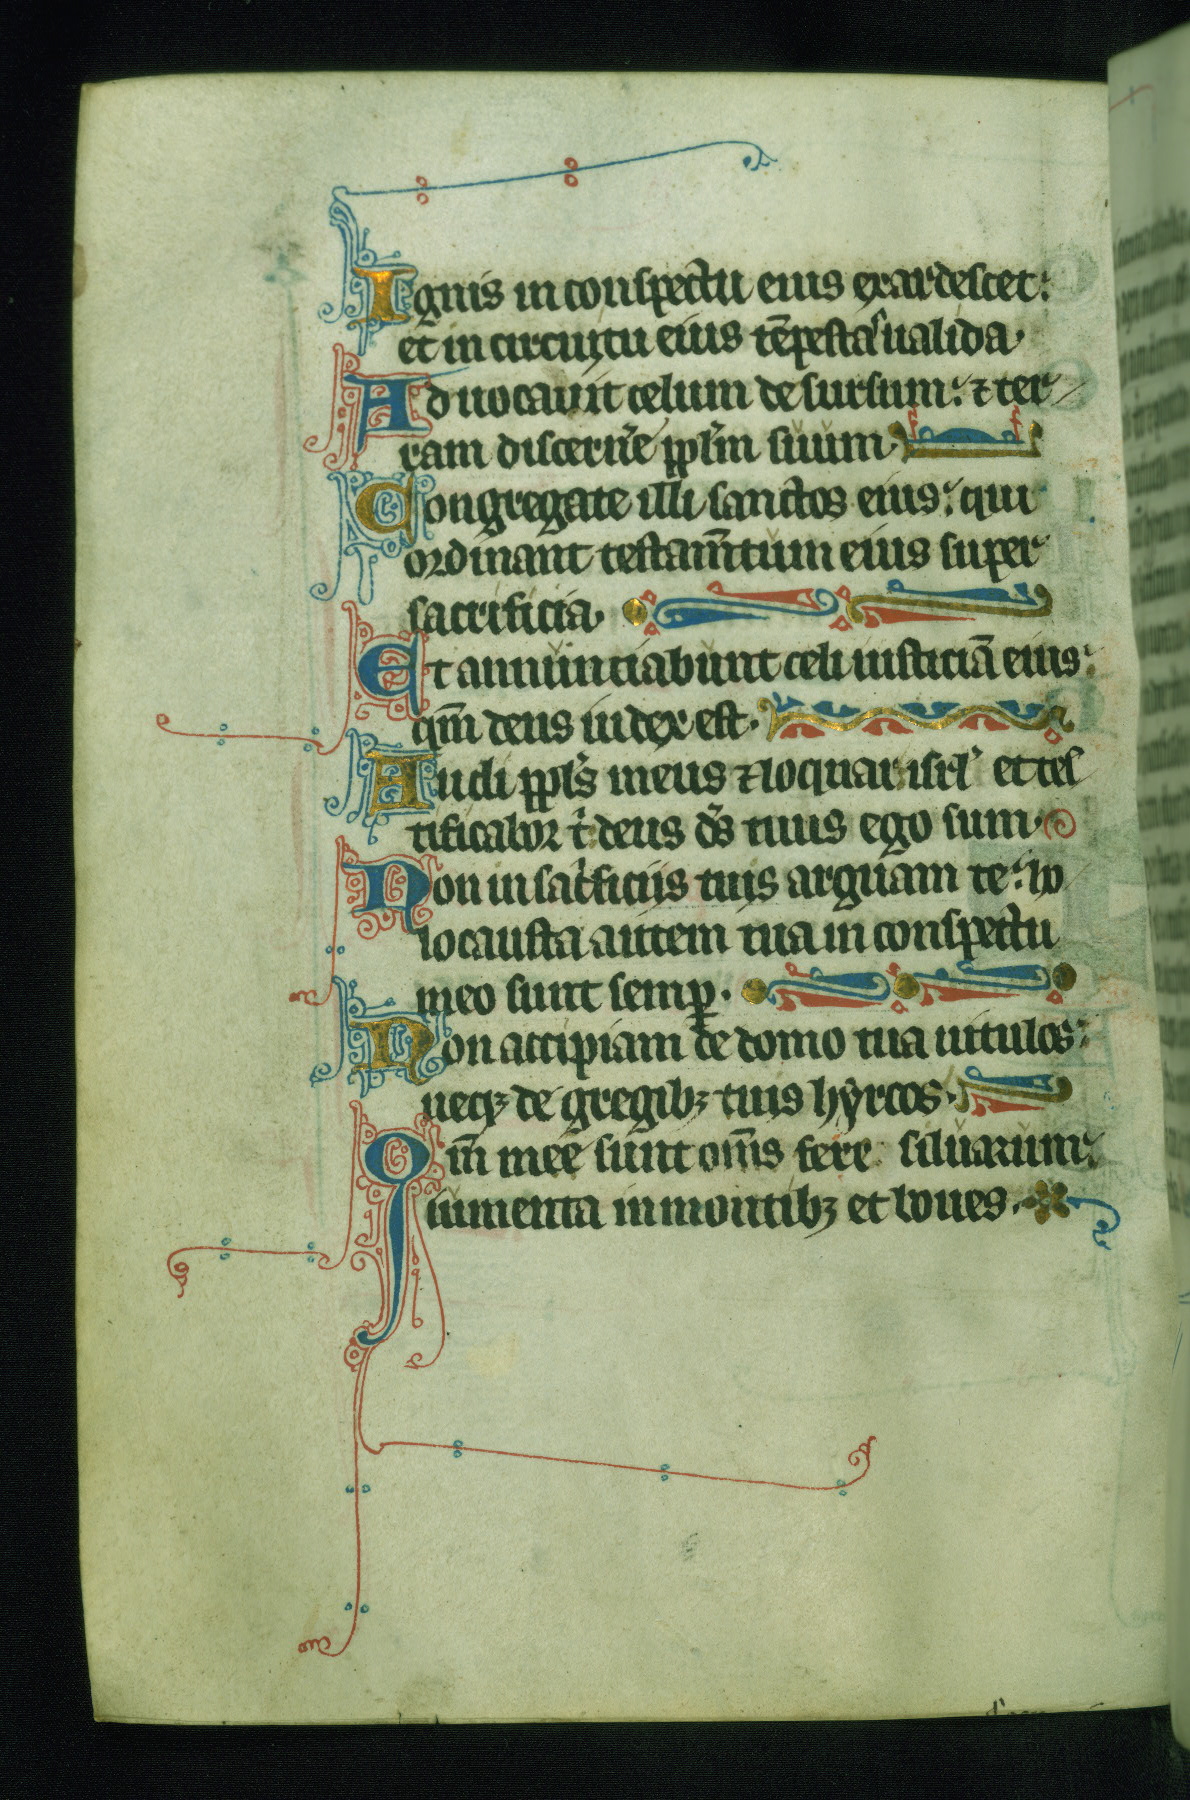 Ignis in conspectu eius exardescet:
et in circuytu eius tēpestas ualida.
Aduocauit celum desursum: ⁊ ter
ram discern̄e pplm̄ suum.
Congregate illi sanctos eius: qui
ordinant testam̄tum eius super
sacrificia.
Et annunciabunt celi iusticiā eius:
qm̄ deus iudex est.
Audi ppls̄ meus ⁊ loquar isrl̓ et tes
tificabor t̄ deus ds̄ tuus ego sum.
Non in sac̄ficiis tuis arguam te: ho
locausta autem tua in conspectu
meo sunt semꝑ.
Non accipiam de domo tua uitulos:
neqꝫ de gregibꝫ tuis hyrcos.
Qm̄ mee sunt om̄s fere siluarum:
iumenta in montibꝫ et boues.